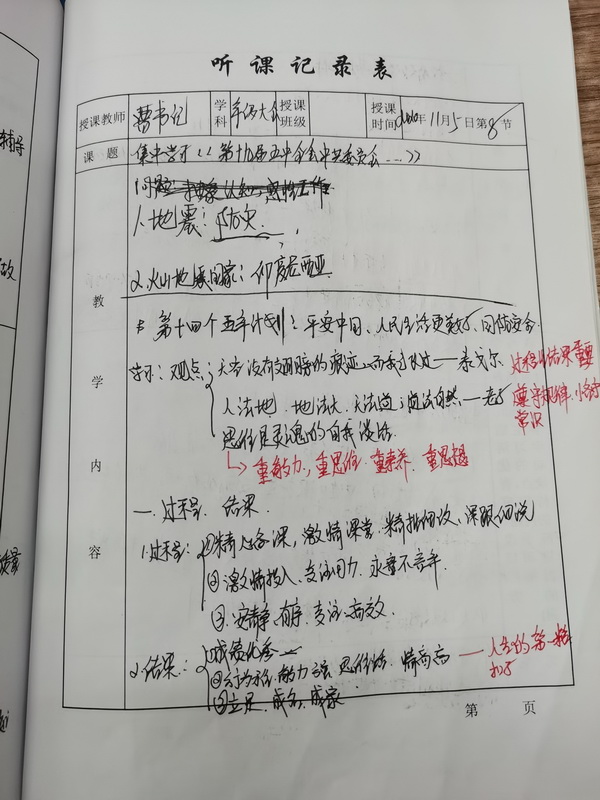 听课记录表
授课教师 曹书记 学科 授课班级 授课时间 2020年11月5日第8节
课题 集中学习《第十九届五中全会中央委员会...》
1.地震:防灾
2.火山地震国家:印度尼西亚
教学内容
* 第十四个五年计划:平安中国、人民生活更美好、国防安全
学习:观点: 天空没有翅膀的痕迹,而我已飞过——泰戈尔
过程与结果重要
人法地、地法天、天法道、道法自然——老子
遵守规律,
常识
思维是灵魂的自我谈话
重能力,重思维、重素养、重思想
一.过程、结果
1.过程: ①精心备课,激情课堂、精批细改、深跟细说
②激情投入、专注用力、永葆不言年
③安静、有序、专注、高效
2.结果: ①成绩优秀
② 能力强、思维活、情商高 —— 人生的第一粒扣子
③立足、成名、成家
第 页